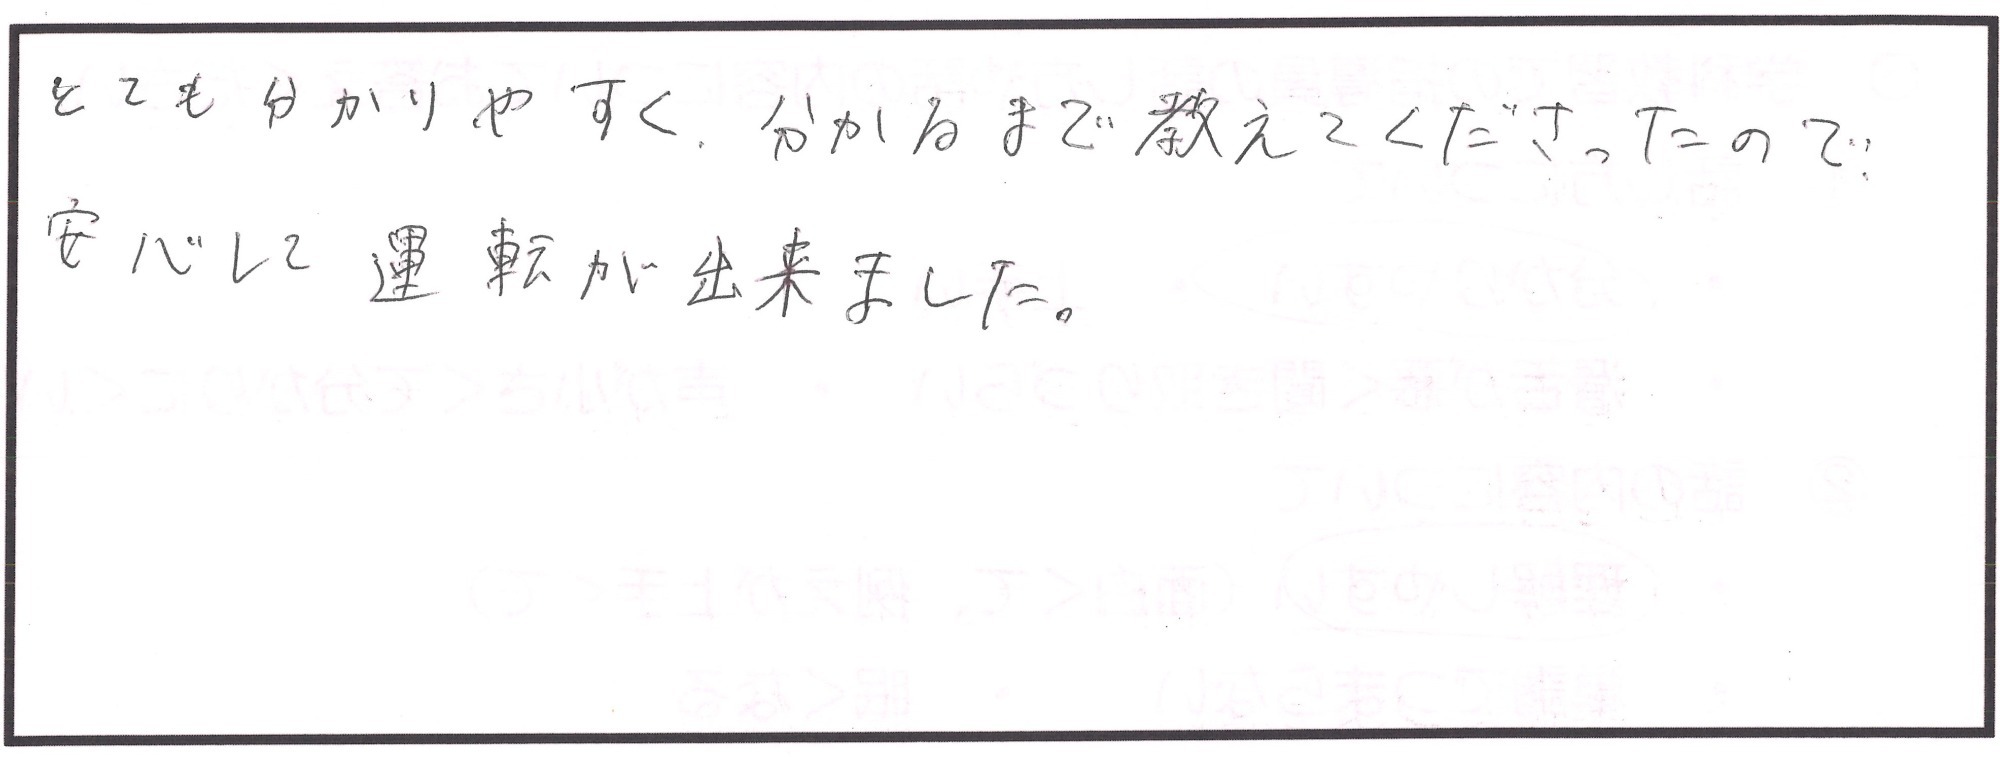 とても分かりやすく、分かるまで教えてくださったので
安心して運転が出来ました。